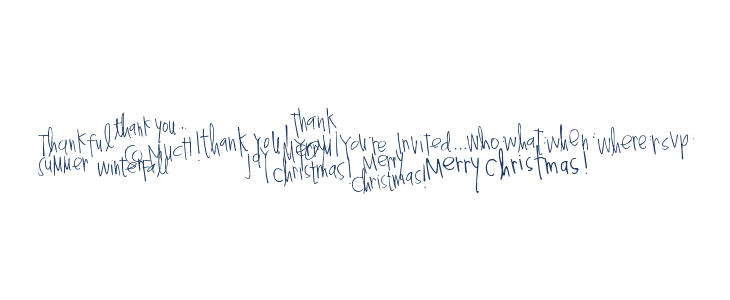 Thank
Thankful thank you... so much! thank you! you're invited...who.what.when.where rsvp.
summer winter fall joy Merry Christmas! Merry Christmas! Merry Christmas!